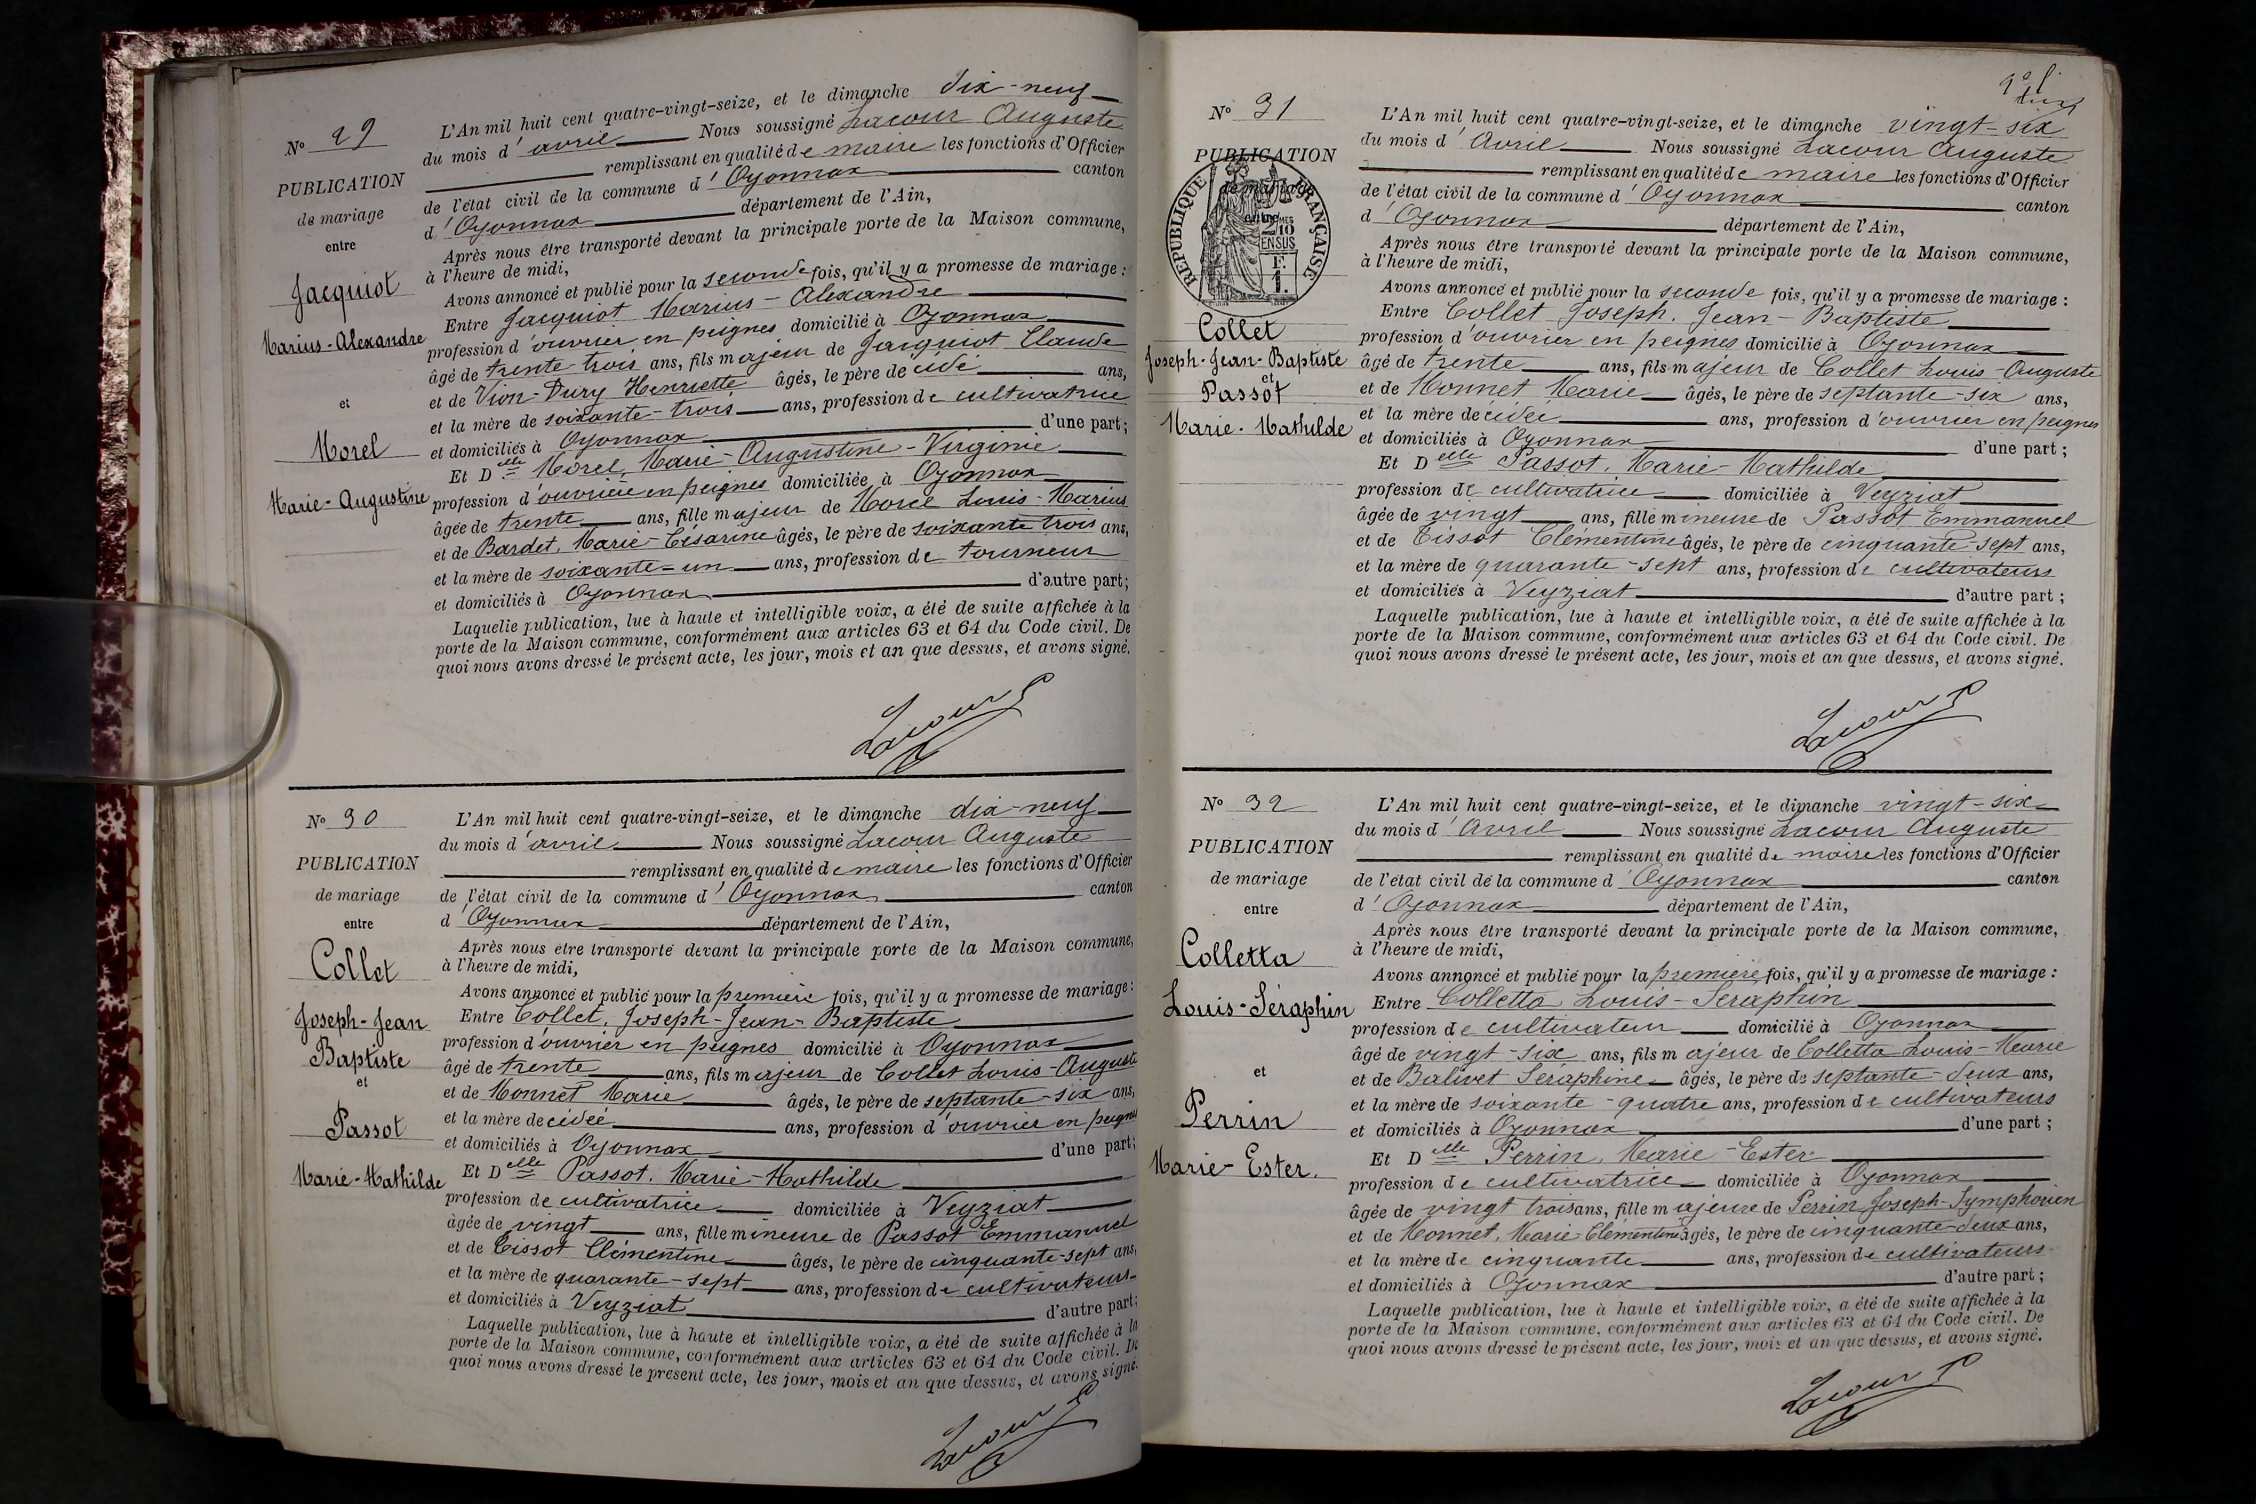 No 29
PUBLICATION
de mariage
entre
Jacquiot
Marius-Alexandre
et
Morel
Marie-Augustine
L'An mil huit cent quatre-vingt-seize, et le dimanche dix-neuf
du mois d'avril Nous soussigné Lacour Auguste
remplissant en qualité de maire les fonctions d'Officier
de l'état civil de la commune d'Oyonnax canton
d'Oyonnax département de l'Ain,
Après nous être transporté devant la principale porte de la Maison commune,
à l'heure de midi,
Avons annoncé et publié pour la seconde fois, qu'il y a promesse de mariage :
Entre Jacquiot Marius-Alexandre
profession d'ouvrier en peignes domicilié à Oyonnax
âgé de trente-trois ans, fils majeur de Jacquiot Claude
et de Vion-Dury Henriette âgés, le père décédé ans,
et la mère de soixante-trois ans, profession de cultivatrice
et domiciliés à Oyonnax d'une part ;
Et Delle Morel, Marie-Augustine-Virginie
profession d'ouvrière en peignes domiciliée à Oyonnax
âgée de trente ans, fille majeur de Morel Louis-Marius
et de Bardet, Marie-Césarine âgés, le père de soixante trois ans,
et la mère de soixante-un ans, profession de tourneur
et domiciliés à Oyonnax d'autre part ;
Laquelle publication, lue à haute et intelligible voix, a été de suite affichée à la
porte de la Maison commune, conformément aux articles 63 et 64 du Code civil. De
quoi nous avons dressé le présent acte, les jour, mois et an que dessus, et avons signé.
Lacour
No 30
PUBLICATION
de mariage
entre
Collet
Joseph-Jean
Baptiste
et
Passot
Marie-Mathilde
L'An mil huit cent quatre-vingt-seize, et le dimanche dix-neuf
du mois d'avril Nous soussigné Lacour Auguste
remplissant en qualité de maire les fonctions d'Officier
de l'état civil de la commune d'Oyonnax canton
d'Oyonnax département de l'Ain,
Après nous être transporté devant la principale porte de la Maison commune,
à l'heure de midi,
Avons annoncé et publié pour la première fois, qu'il y a promesse de mariage :
Entre Collet, Joseph-Jean-Baptiste
profession d'ouvrier en peignes domicilié à Oyonnax
âgé de trente ans, fils majeur de Collet Louis-Auguste
et de Monnet Marie âgés, le père de septante-six ans,
et la mère décédée ans, profession d'ouvrier en peignes
et domiciliés à Oyonnax d'une part ;
Et Delle Passot, Marie-Mathilde
profession de cultivatrice domiciliée à Veyziat
âgée de vingt ans, fille mineure de Passot Emmanuel
et de Tissot Clémentine âgés, le père de cinquante-sept ans,
et la mère de quarante-sept ans, profession de cultivateurs
et domiciliés à Veyziat d'autre part ;
Laquelle publication, lue à haute et intelligible voix, a été de suite affichée à la
porte de la Maison commune, conformément aux articles 63 et 64 du Code civil. De
quoi nous avons dressé le présent acte, les jour, mois et an que dessus, et avons signé.
Lacour
No 31
PUBLICATION
de mariage
entre
RÉPUBLIQUE FRANÇAISE
2/10
EN SUS
F.
1.
Collet
Joseph-Jean-Baptiste
et
Passot
Marie-Mathilde
L'An mil huit cent quatre-vingt-seize, et le dimanche vingt-six
du mois d'Avril Nous soussigné Lacour Auguste
remplissant en qualité de maire les fonctions d'Officier
de l'état civil de la commune d'Oyonnax canton
d'Oyonnax département de l'Ain,
Après nous être transporté devant la principale porte de la Maison commune,
à l'heure de midi,
Avons annoncé et publié pour la seconde fois, qu'il y a promesse de mariage :
Entre Collet Joseph-Jean-Baptiste
profession d'ouvrier en peignes domicilié à Oyonnax
âgé de trente ans, fils majeur de Collet Louis-Auguste
et de Monnet Marie âgés, le père de septante-six ans,
et la mère décédée ans, profession d'ouvrier en peignes
et domiciliés à Oyonnax d'une part ;
Et Delle Passot, Marie-Mathilde
profession de cultivatrice domiciliée à Veyziat
âgée de vingt ans, fille mineure de Passot Emmanuel
et de Tissot Clémentine âgés, le père de cinquante-sept ans,
et la mère de quarante-sept ans, profession de cultivateurs
et domiciliés à Veyziat d'autre part ;
Laquelle publication, lue à haute et intelligible voix, a été de suite affichée à la
porte de la Maison commune, conformément aux articles 63 et 64 du Code civil. De
quoi nous avons dressé le présent acte, les jour, mois et an que dessus, et avons signé.
Lacour
No 32
PUBLICATION
de mariage
entre
Colletta
Louis-Séraphin
et
Perrin
Marie-Ester.
L'An mil huit cent quatre-vingt-seize, et le dimanche vingt-six
du mois d'Avril Nous soussigné Lacour Auguste
remplissant en qualité de maire les fonctions d'Officier
de l'état civil de la commune d'Oyonnax canton
d'Oyonnax département de l'Ain,
Après nous être transporté devant la principale porte de la Maison commune,
à l'heure de midi,
Avons annoncé et publié pour la première fois, qu'il y a promesse de mariage :
Entre Colletta Louis-Séraphin
profession de cultivateur domicilié à Oyonnax
âgé de vingt-six ans, fils majeur de Colletta Louis-Marie
et de Balivet Séraphine âgés, le père de septante-deux ans,
et la mère de soixante-quatre ans, profession de cultivateurs
et domiciliés à Oyonnax d'une part ;
Et Delle Perrin, Marie-Ester
profession de cultivatrice domiciliée à Oyonnax
âgée de vingt trois ans, fille majeure de Perrin Joseph-Symphorien
et de Monnet, Marie Clémentine âgés, le père de cinquante-deux ans,
et la mère de cinquante ans, profession de cultivateurs
et domiciliés à Oyonnax d'autre part ;
Laquelle publication, lue à haute et intelligible voix, a été de suite affichée à la
porte de la Maison commune, conformément aux articles 63 et 64 du Code civil. De
quoi nous avons dressé le présent acte, les jour, mois et an que dessus, et avons signé.
Lacour